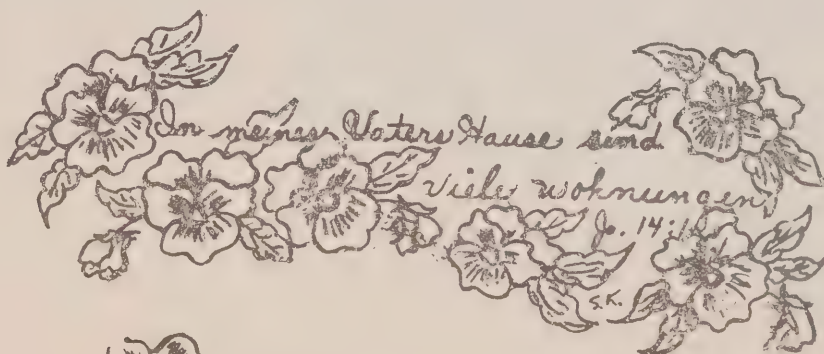 In meines Vaters Hause sind
Viele wohnungen,
Jo. 14:
S.K.